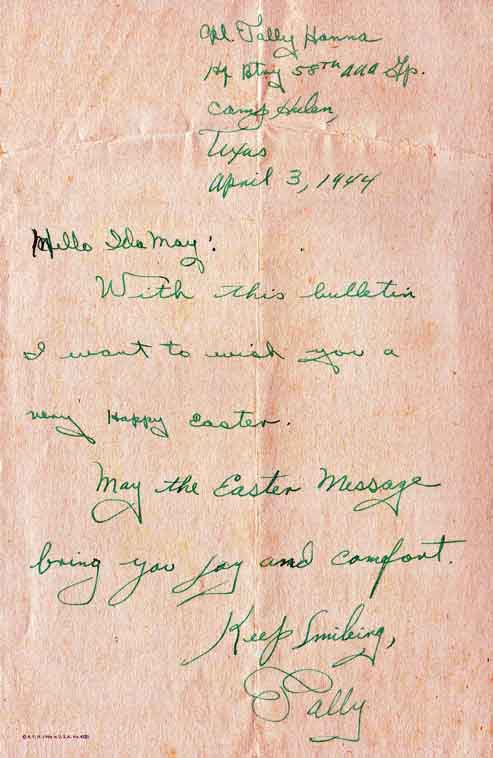 Tally Hanna
Hq Btry 58th AAA Gp.
Camp Hulen,
Texas
April 3, 1944
Hello Ida May:
With this bulletin
I want to wish you a
very Happy Easter.
May the Easter Message
bring you joy and comfort.
Keep Smileing,
Tally